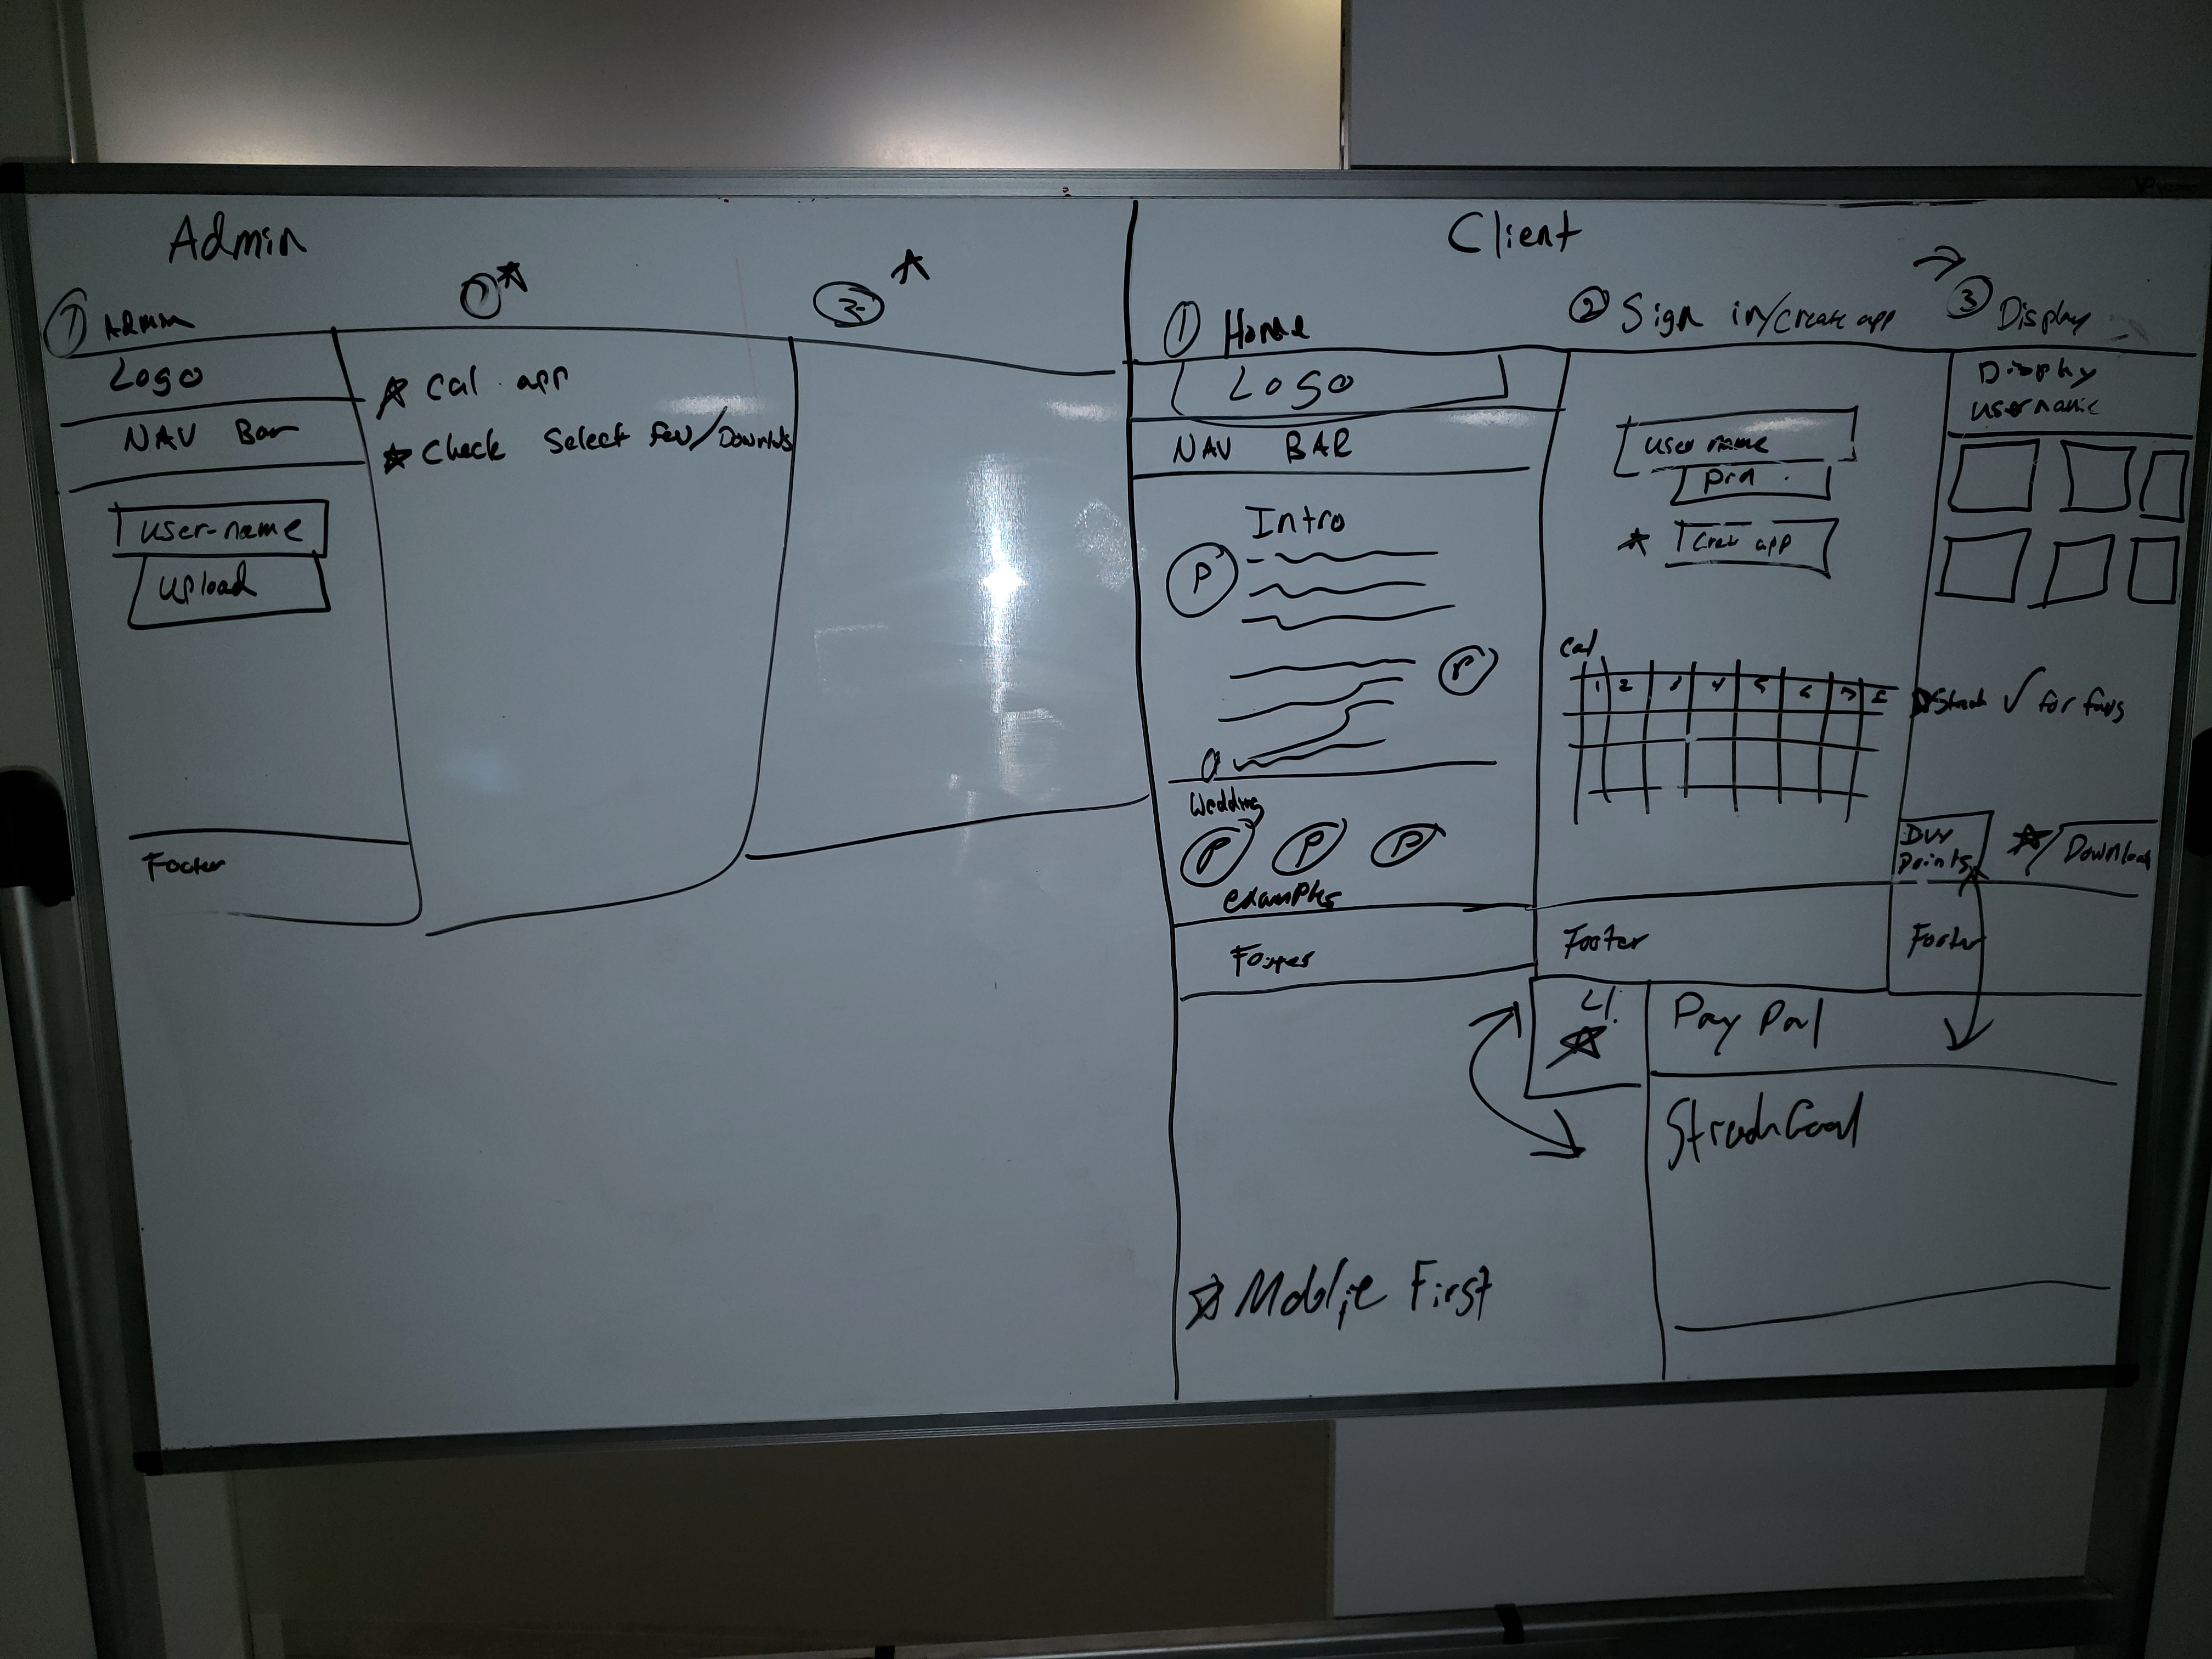 Admin
① Admin
Logo
NAV Bar
user-name
upload
Footer
①
Cal. app
Check Select fav/Downlds
Client
① Home
LOGO
NAV BAR
Intro
P
P
Wedding
P P P
examples
Footer
② Sign in/create app
user name
Creat app
Cal
1 2 3 4 5 6 7
Footer
③ Display
Display
username
✓ for favs
Buy
Prints
Download
Footer
4
Pay Pal
Strech Goal
Moblie First